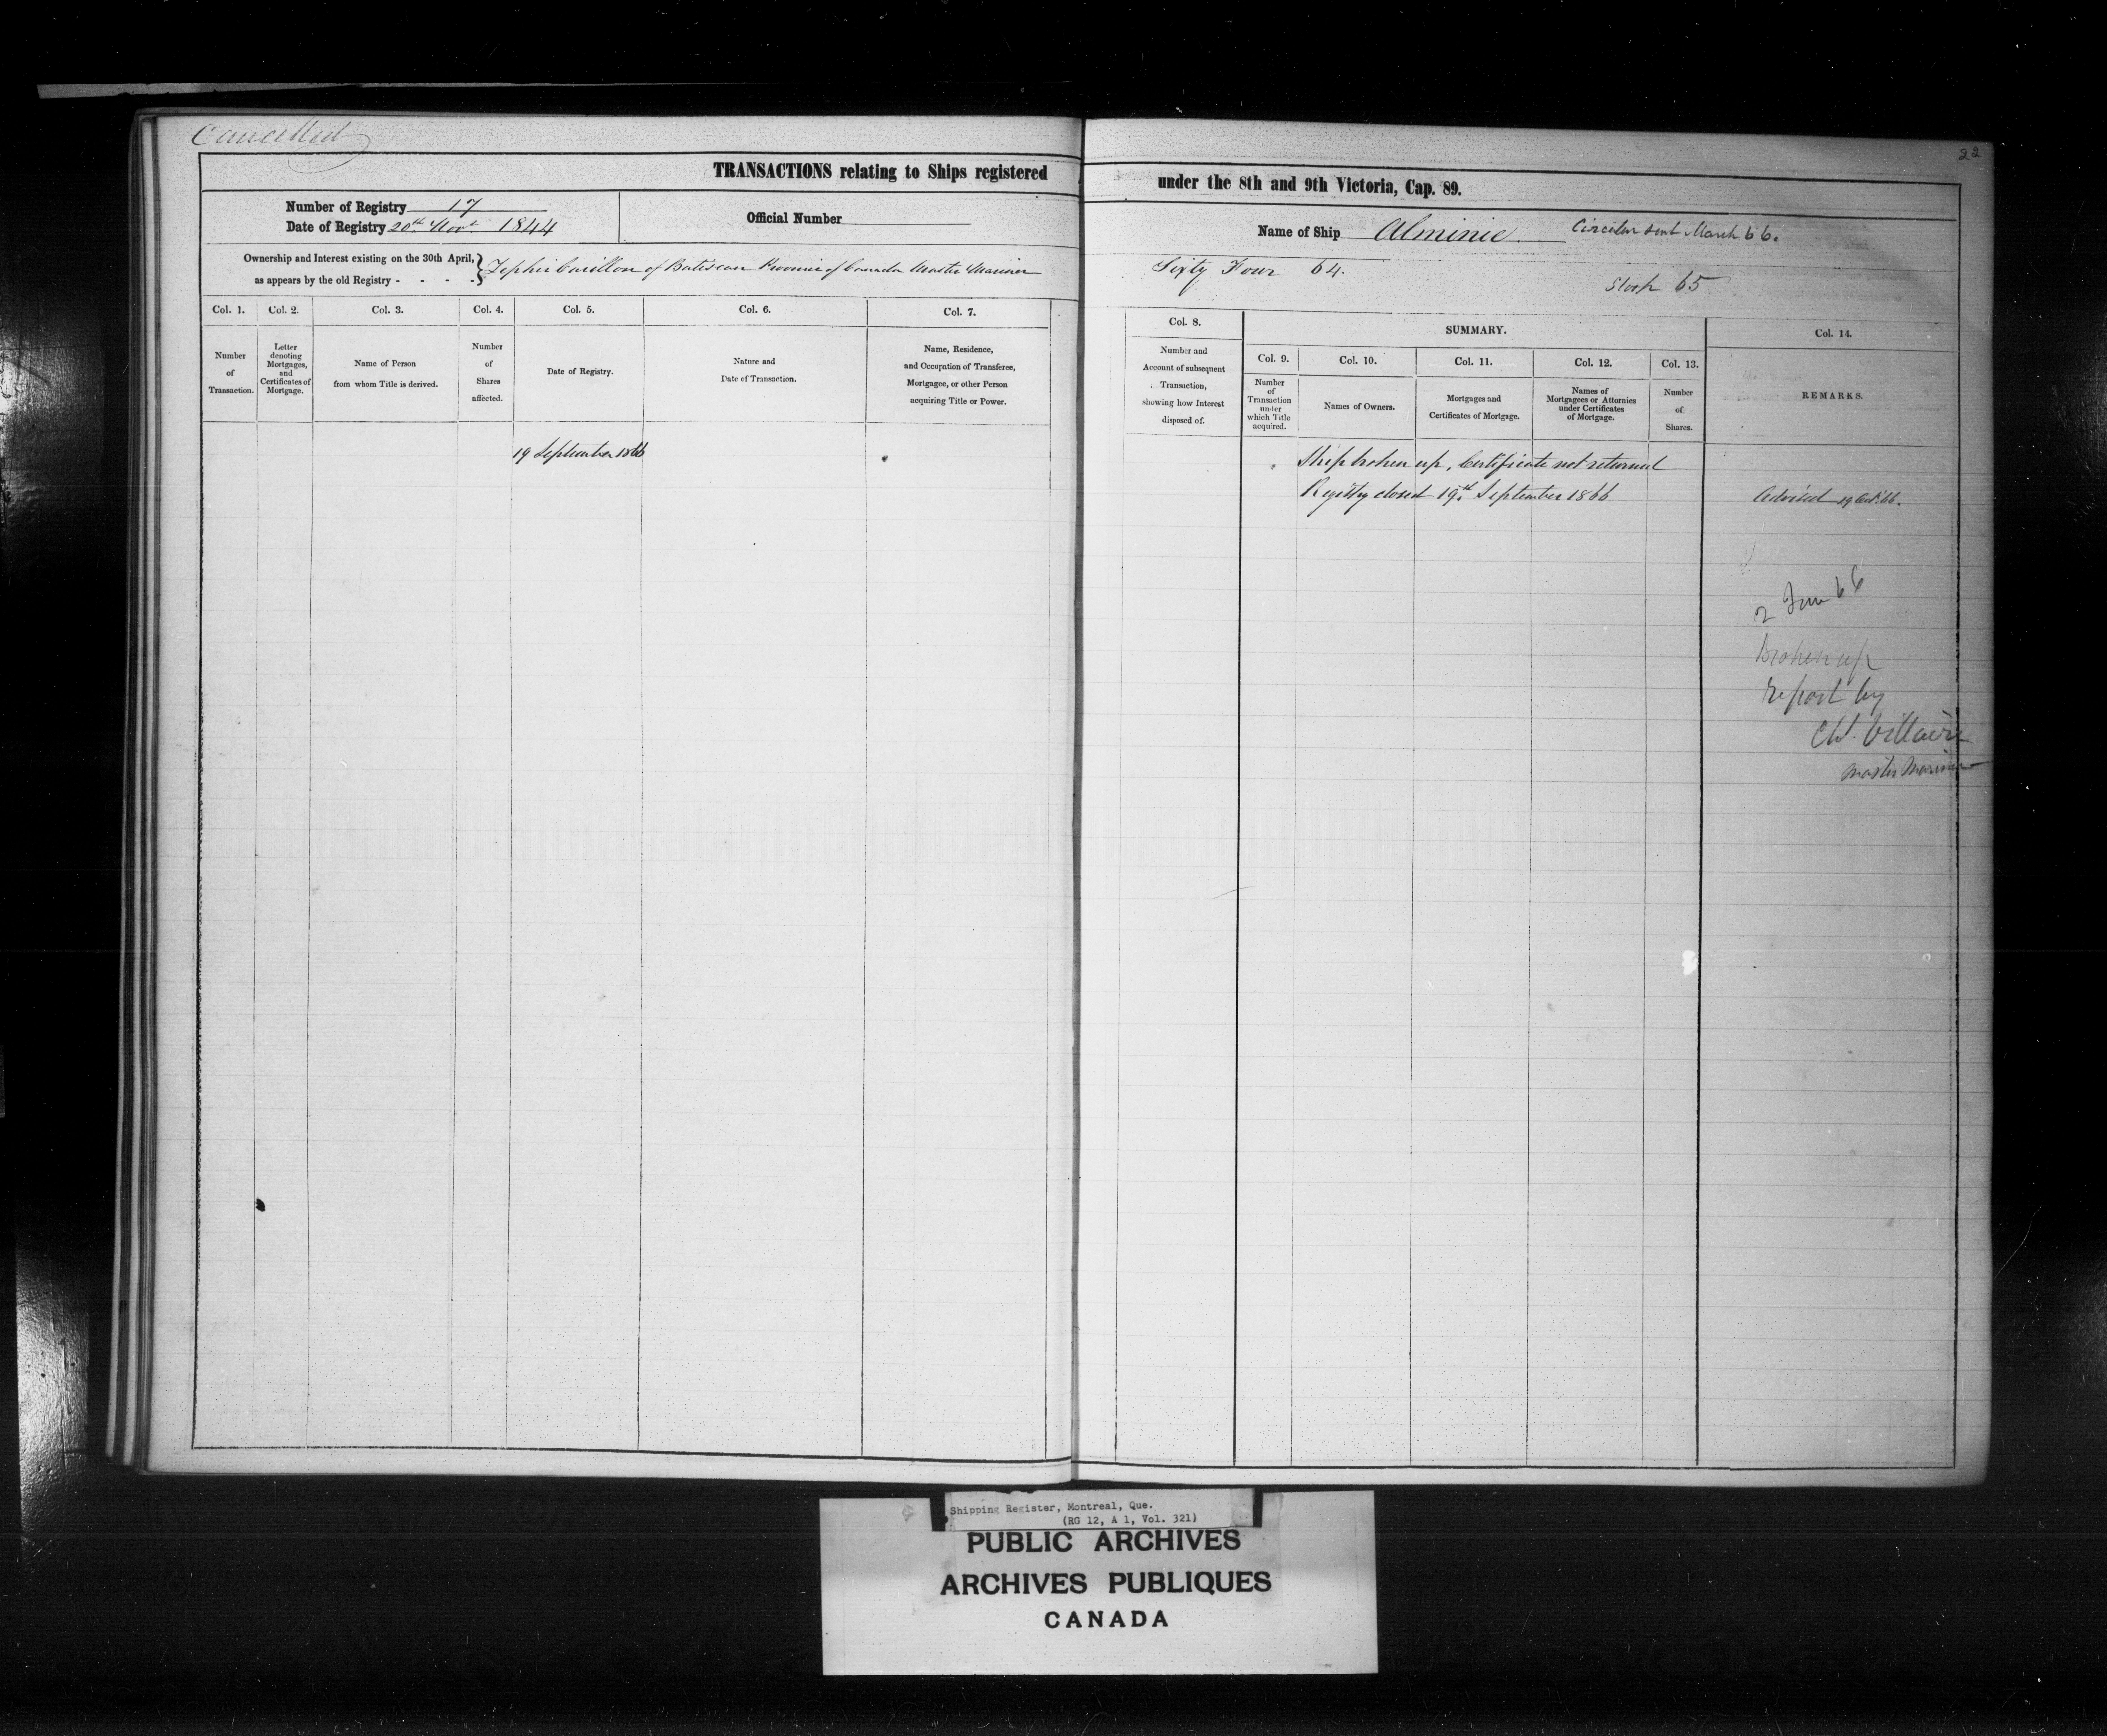 Cancelled
22
TRANSACTIONS relating to Ships registered under the 8th and 9th Victoria, Cap. 89.
Number of Registry 17
Date of Registry 20th Novr 1844
Official Number
Name of Ship Alminie
Circular sent March 66.
Ownership and Interest existing on the 30th April,
as appears by the old Registry - - - -
Zephir Carillon of Batiscan Province of Canada Master Mariner
Sixty Four 64.
Sloop 65
Col. 1.
Number
of
Transaction.
Col. 2.
Letter
denoting
Mortgages,
and
Certificates of
Mortgage.
Col. 3.
Name of Person
from whom Title is derived.
Col. 4.
Number
of
Shares
affected.
Col. 5.
Date of Registry.
Col. 6.
Nature and
Date of Transaction.
Col. 7.
Name, Residence,
and Occupation of Transferee,
Mortgagee, or other Person
acquiring Title or Power.
Col. 8.
Number and
Account of subsequent
Transaction,
showing how Interest
disposed of.
SUMMARY.
Col. 9.
Number
of
Transaction
under
which Title
acquired.
Col. 10.
Names of Owners.
Col. 11.
Mortgages and
Certificates of Mortgage.
Col. 12.
Names of
Mortgagees or Attornies
under Certificates
of Mortgage.
Col. 13.
Number
of
Shares.
Col. 14.
REMARKS.
19 September 1866
Ship broken up, Certificate not returned
Registry closed 19th September 1866
Advised 19 Oct. 66.
2 June 66
Broken up
report by
Villaire
Master Mariner
Shipping Register, Montreal, Que.
(RG 12, A 1, Vol. 321)
PUBLIC ARCHIVES
ARCHIVES PUBLIQUES
CANADA